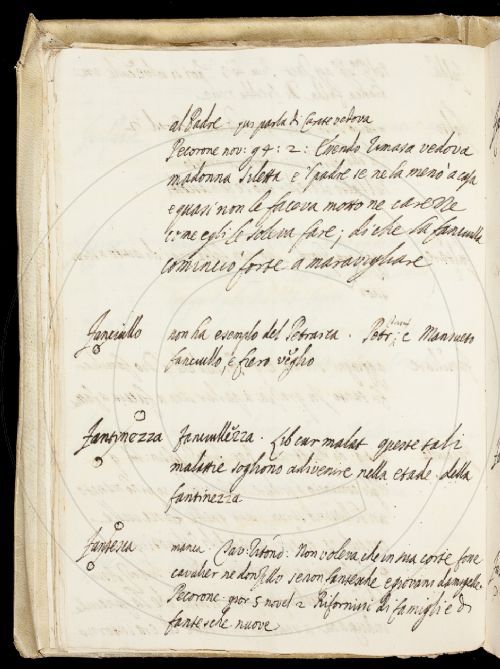 al Padre. qui parla di Carate vedova
Pecorone nov: g 4: 2: Essendo rimasa vedova
madonna Siletta e 'l padre se ne la menò a casa
e quasi non le faceva motto ne carezze
come egli le soleva fare; di che la fanciulla
cominciò forte a maravigliare
fanciullo non ha esemplo del Petrarca. Petr: e Mansueto
fanciullo, e fiero veglio
fantinezza fanciullezza. Lib cur malat queste tali
malattie sogliono adivenire nella etade della
fantinezza
fantesca manca. Tav: Riton: Non voleva che in sua corte fosse
cavalier ne donzello se non fantesche e giovani damigelle.
Pecorone gior: 5 novel 2 Rifornirsi di famigli e di
fantesche nuove